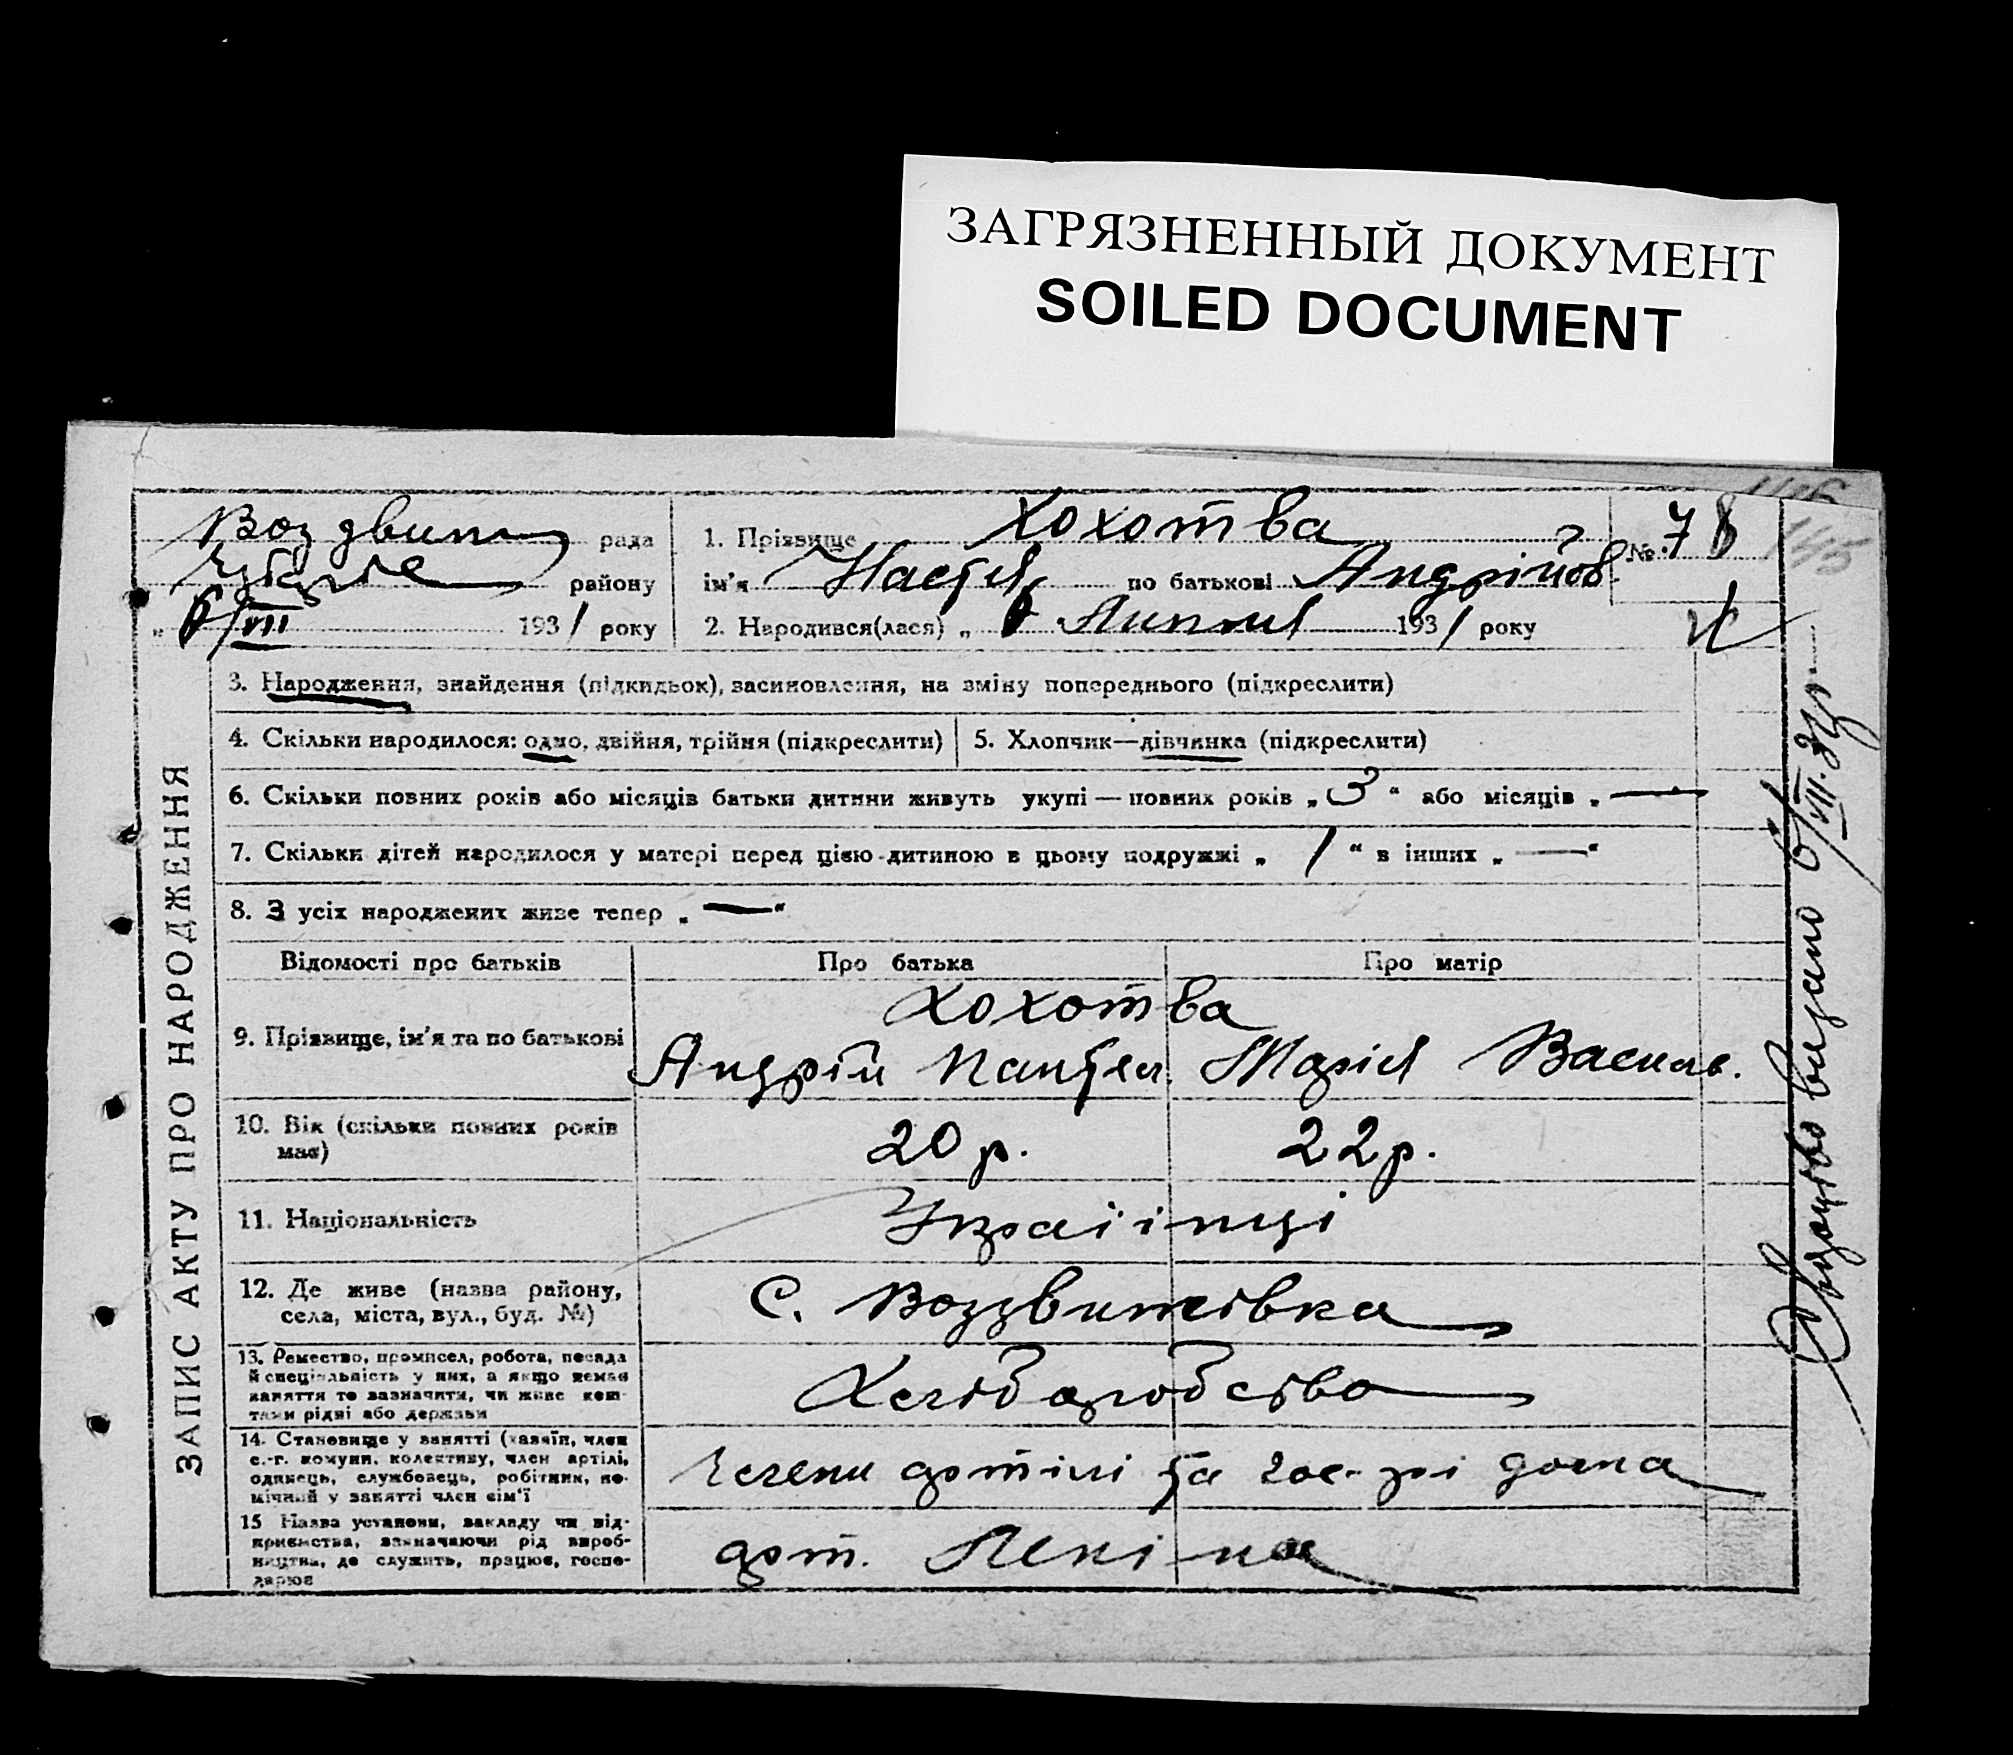 ЗАГРЯЗНЕННЫЙ ДОКУМЕНТ
SOILED DOCUMENT
145
Воздвиж рада
району
6/VII 1931 року
1. Прізвище Хохотва
ім'я Настя по батькові Андрійов.
№ 78
2. Народився(лася) „ 6 Липня 1931 року
3. Народження, знайдення (підкидьок), засиновлення, на зміну попереднього (підкреслити)
4. Скільки народилося: одно, двійня, трійня (підкреслити)
5. Хлопчик—дівчинка (підкреслити)
6. Скільки повних років або місяців батьки дитини живуть укупі — повних років „ 3 “ або місяців „ —
7. Скільки дітей народилося у матері перед цією дитиною в цьому подружжі „ 1 “ в інших „ — “
8. З усіх народжених живе тепер „ — “
Відомості про батьків Про батька Про матір
9. Прізвище, ім'я та по батькові
Хохотва
Андрій Пантел. Марія Василь.
10. Вік (скільки повних років має)
20 р. 22 р.
11. Національність
Українці
12. Де живе (назва району, села, міста, вул., буд. №)
с. Воздвижівка
13. Ремество, промисел, робота, посада й спеціяльність у них, а якщо немає заняття то зазначити, чи живе коштами рідні або держави
Хліборобство
14. Становище у занятті (хазяїн, член с.-г. комуни, колективу, член артілі, одинець, службовець, робітник, помічний у занятті член сім'ї
Члени артілі та дома
15 Назва установи, закладу чи підприємства, зазначаючи рід виробництва, де служить, працює, господарює
арт. Леніна
ЗАПИС АКТУ ПРО НАРОДЖЕННЯ
Свідоцтво видано 6/VIII.31р.